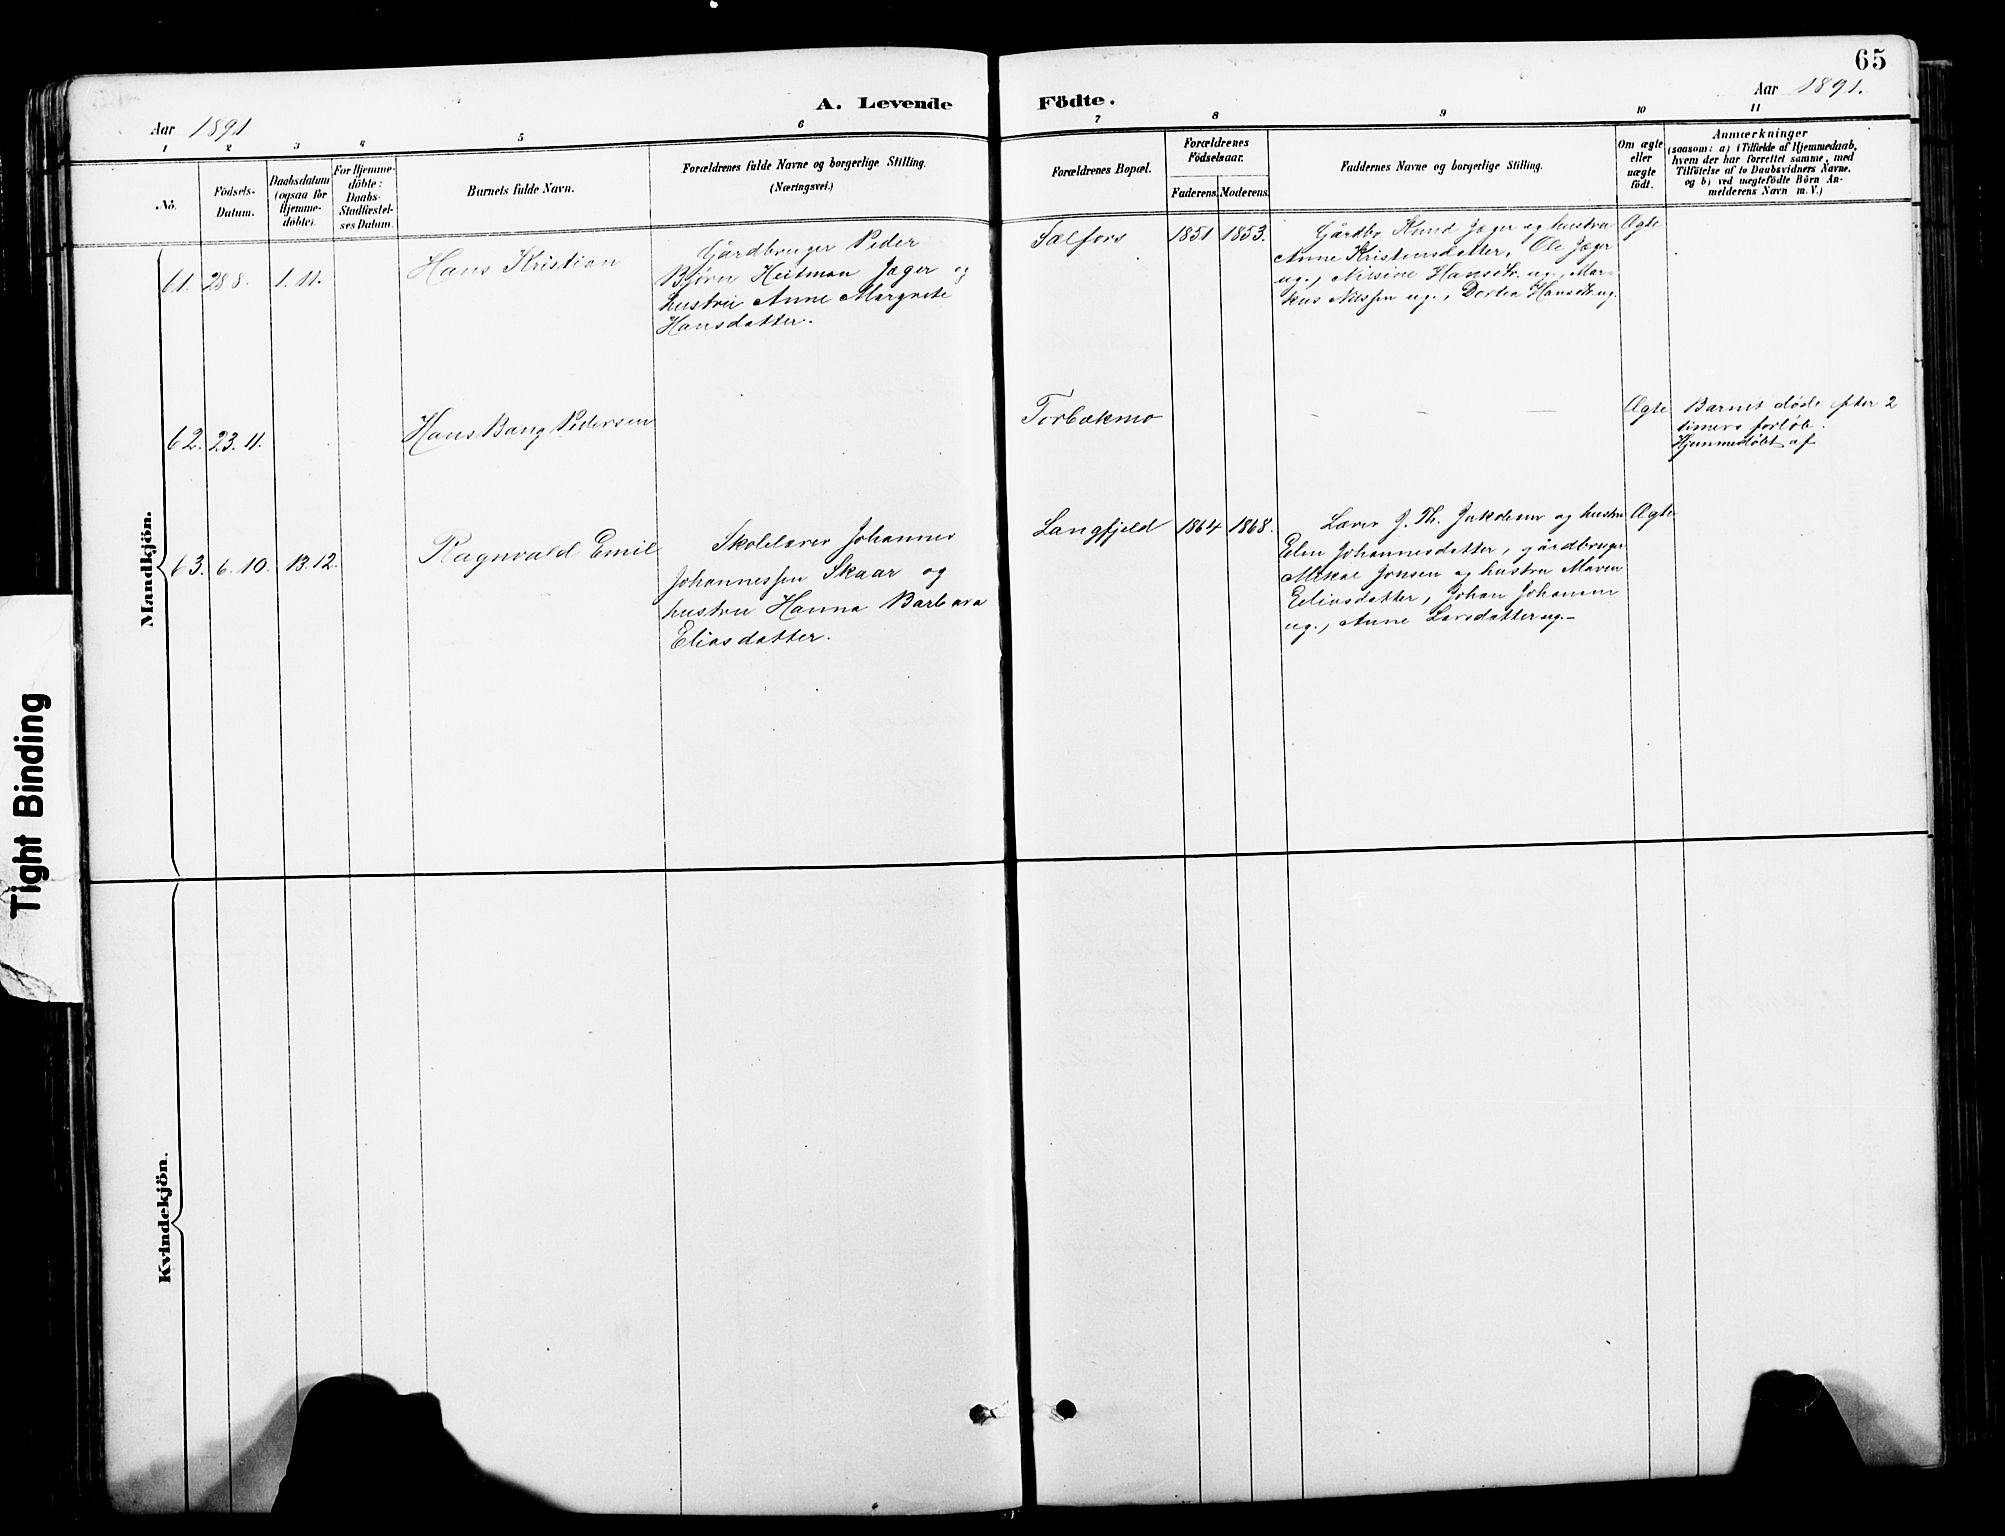 65
A. Levende Födte.
Aar 1891
Aar 1891.
1 2 3 4 5 6 7 8 9 10 11
No.
Födsels-
Datum.
Daabsdatum
(ogsaa for
Hjemme-
döbte).
For Hjemme-
döbte:
Daabs-
Stadfæstel-
ses Datum.
Barnets fulde Navn.
Forældrenes fulde Navne og borgerlige Stilling.
(Næringsvei.)
Forældrenes Bopæl.
Forældrenes
Födselsaar.
Faderens. Moderens.
Faddernes Navne og borgerlige Stilling.
Om ægte
eller
uægte
födt.
Anmærkninger
(saasom: a) i Tilfælde af Hjemmedaab,
hvem der har forrettet samme, med
Tilföielse af to Daabsvidners Navne,
og b) ved uægtefödte Börn An-
melderens Navn m. V.)
Mandkjön.
61. 28.8. 1.11.
Hans Kristian
Gårdbruger Peder
Bjørn Heitman Jæger og
hustru Anne Margrete
Hansdatter.
Sælfors
1851 1853.
Gårdbr Knud Jæger og hustru
Anne Kristensdatter, Ole Jæger
ug., Nilsine Hansdtr. ug., Mar-
kus Nilssen ug., Dortea Hansdtr. ug.
Ægte
62. 23.11.
Hans Bang Pedersen
Torbækmo
Ægte
Barnet døde efter 2
timers forløb.
Hjemmedøbt af
63. 6.10. 13.12.
Ragnvald Emil
Skolelærer Johannes
Johannessen Skaar og
hustru Hanna Barbara
Eliasdatter.
Langfjeld
1864 1868.
Lærer J. Th. Jakobsen og hustru
Elen Johannesdatter, gårdbruger
Mikal Jonsen og hustru Maren
Eliasdatter, Johan Johansen
ug., Anne Larsdatter ug.-
Ægte
Kvindekjön.
Tight Binding